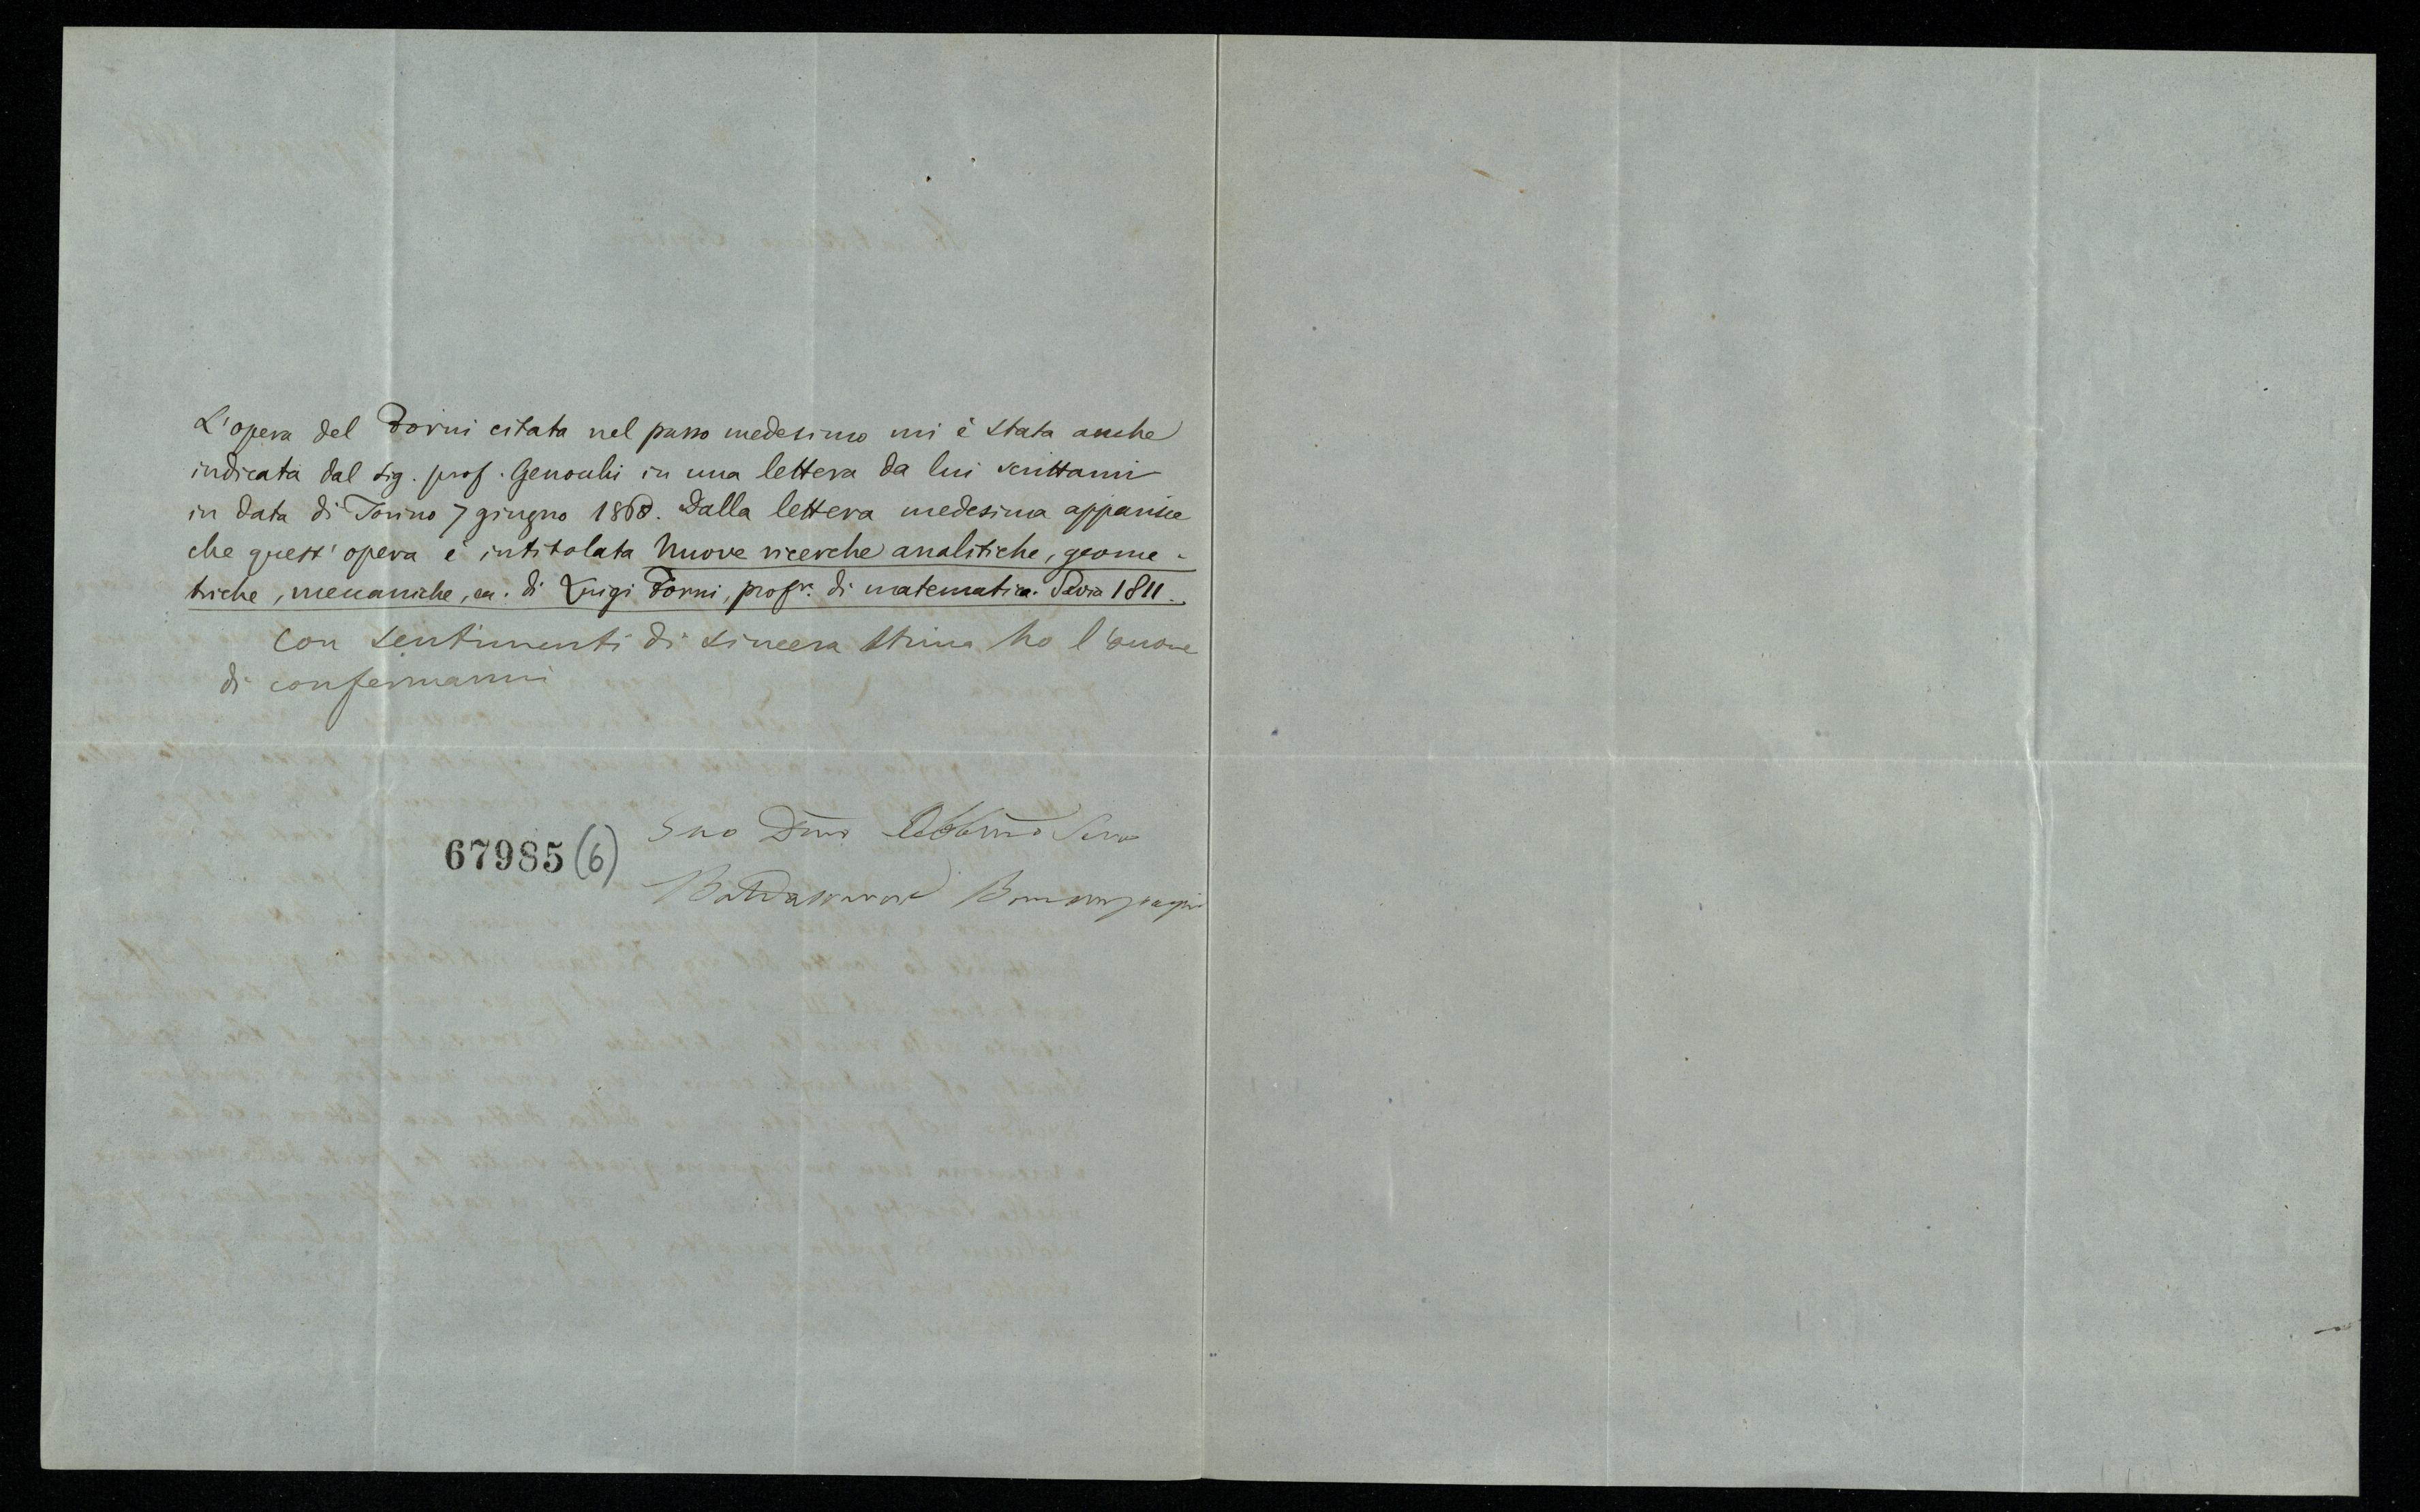 L'opera del Forni citata nel passo medesimo mi è stata anche
indicata dal sig. prof. Genocchi in una lettera da lui scrittami
in data di Torino 7 giugno 1868. Dalla lettera medesima apparisce
che quest' opera è intitolata Nuove ricerche analitiche, geome-
triche, meccaniche, ec. di Luigi Forni, profre. di matematica. Pavia 1811.
Con sentimenti di sincera stima ho l'onore
di confermarmi
Suo Dmo Obblmo Servo
67985 (6)
Baldassarre Boncompagni